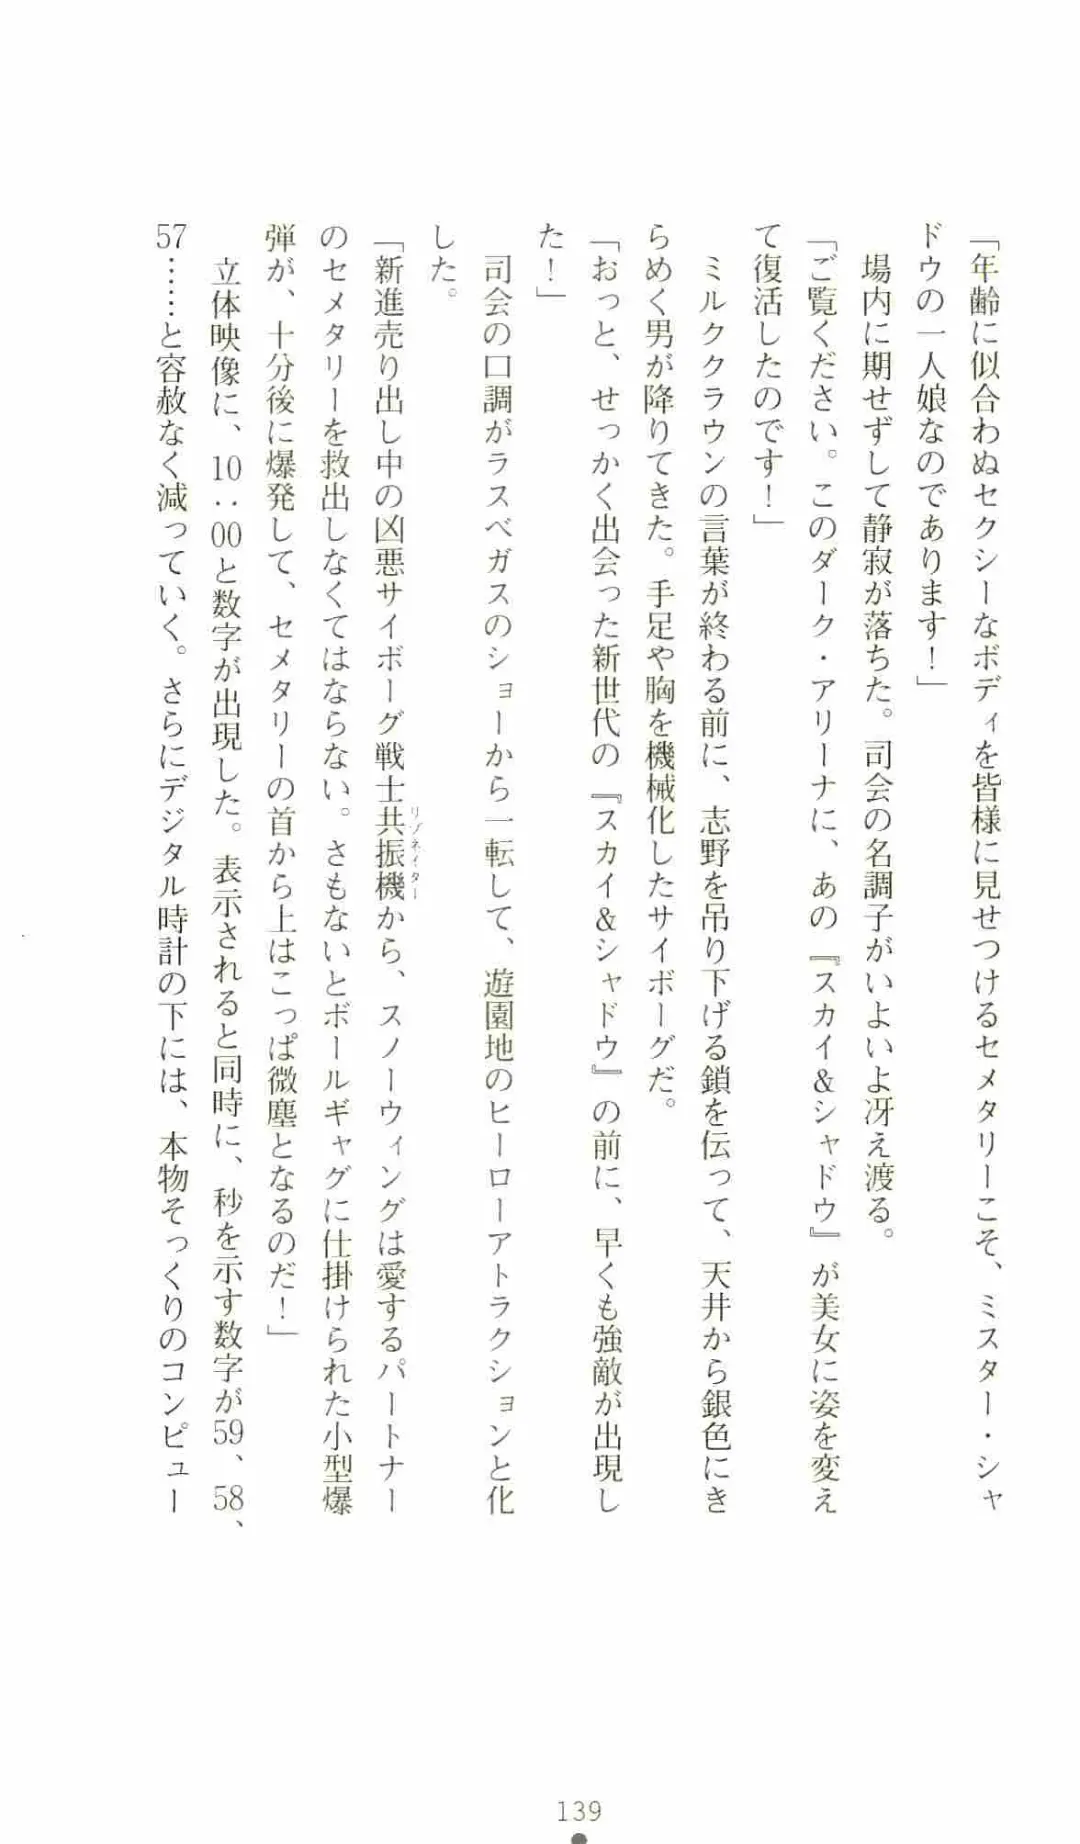 「年齢に似合わぬセクシーなボディを皆様に見せつけるセメタリーこそ、ミスター・シャ
ドウの一人娘なのであります！」
　場内に期せずして静寂が落ちた。司会の名調子がいよいよ冴え渡る。
「ご覧ください。このダーク・アリーナに、あの『スカイ＆シャドウ』が美女に姿を変え
て復活したのです！」
　ミルククラウンの言葉が終わる前に、志野を吊り下げる鎖を伝って、天井から銀色にき
らめく男が降りてきた。手足や胸を機械化したサイボーグだ。
「おっと、せっかく出会った新世代の『スカイ＆シャドウ』の前に、早くも強敵が出現し
た！」
　司会の口調がラスベガスのショーから一転して、遊園地のヒーローアトラクションと化
した。
「新進売り出し中の凶悪サイボーグ戦士共振機から、スノーウィングは愛するパートナー
リゾネイター
のセメタリーを救出しなくてはならない。さもないとボールギャグに仕掛けられた小型爆
弾が、十分後に爆発して、セメタリーの首から上はこっぱ微塵となるのだ！」
　立体映像に、10：00と数字が出現した。表示されると同時に、秒を示す数字が59、58、
57……と容赦なく減っていく。さらにデジタル時計の下には、本物そっくりのコンピュー
139